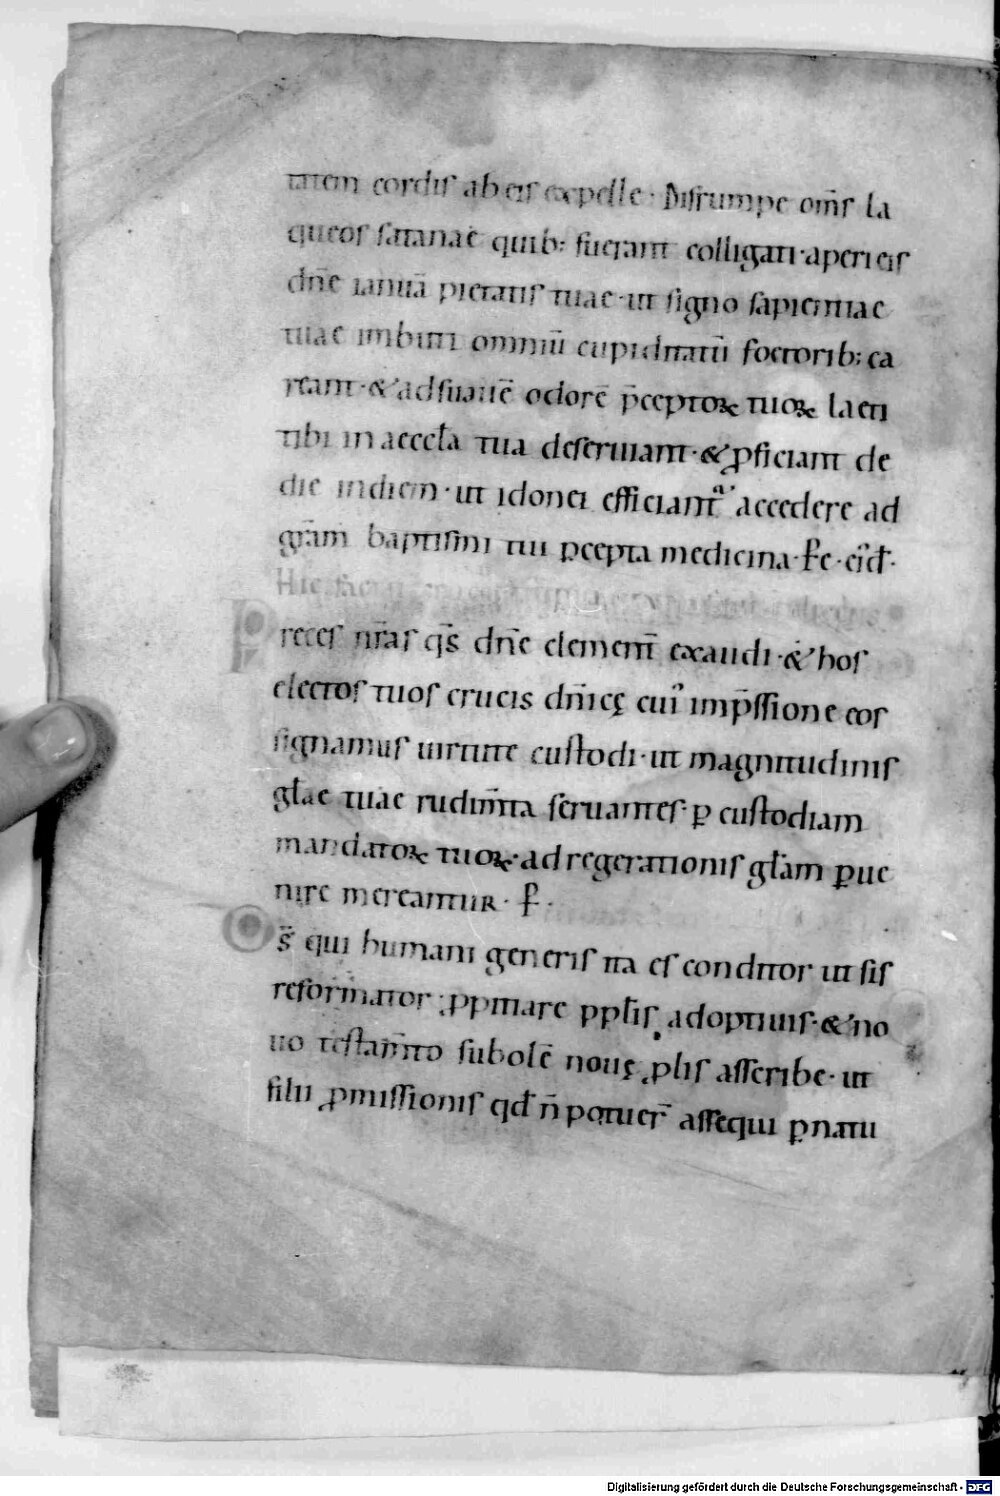 tatem cordis ab eis expelle · Disrumpe om̅s la
queos satanae quib; fuerant colligati · aperi eis
dn̅e ianuā pietatis tuae · ut signo sapientiae
tuae imbuti omniū cupiditatū foetorib; ca
reant · & ad suauē odorē p̅ceptoꝝ tuoꝝ laeti
tibi in aeccl̅a tua deseruiant · & ꝓficiant de
die in diem · ut idonei efficiant᷑ accedere ad
gr̅am baptismi tui p̅cepta medicina · P̲e · eiꝰd̅ ·
Preces nr̅as qs̅ dn̅e clement̅ exaudi · & hos
electos tuos crucis dn̅icę cuiꝰ imp̅ssione eos
signamus uirtute custodi · ut magnitudinis
gl̅ae tuae rudim̅ta seruantes · ꝑ custodiam
mandatoꝝ tuoꝝ · ad regerationis gl̅am ꝑue
nire mereantur · P̲ ·
Os̅ qui humani generis ita es conditor ut sis
reformator · ꝓpitiare ppl̅is adoptiuis · & no
uo testam̅to subolē nouę ꝓlis asscribe · ut
filii ꝓmissionis qd̅ n̅ potuer̅ assequi ꝑ natu
Digitalisierung gefördert durch die Deutsche Forschungsgemeinschaft - DFG